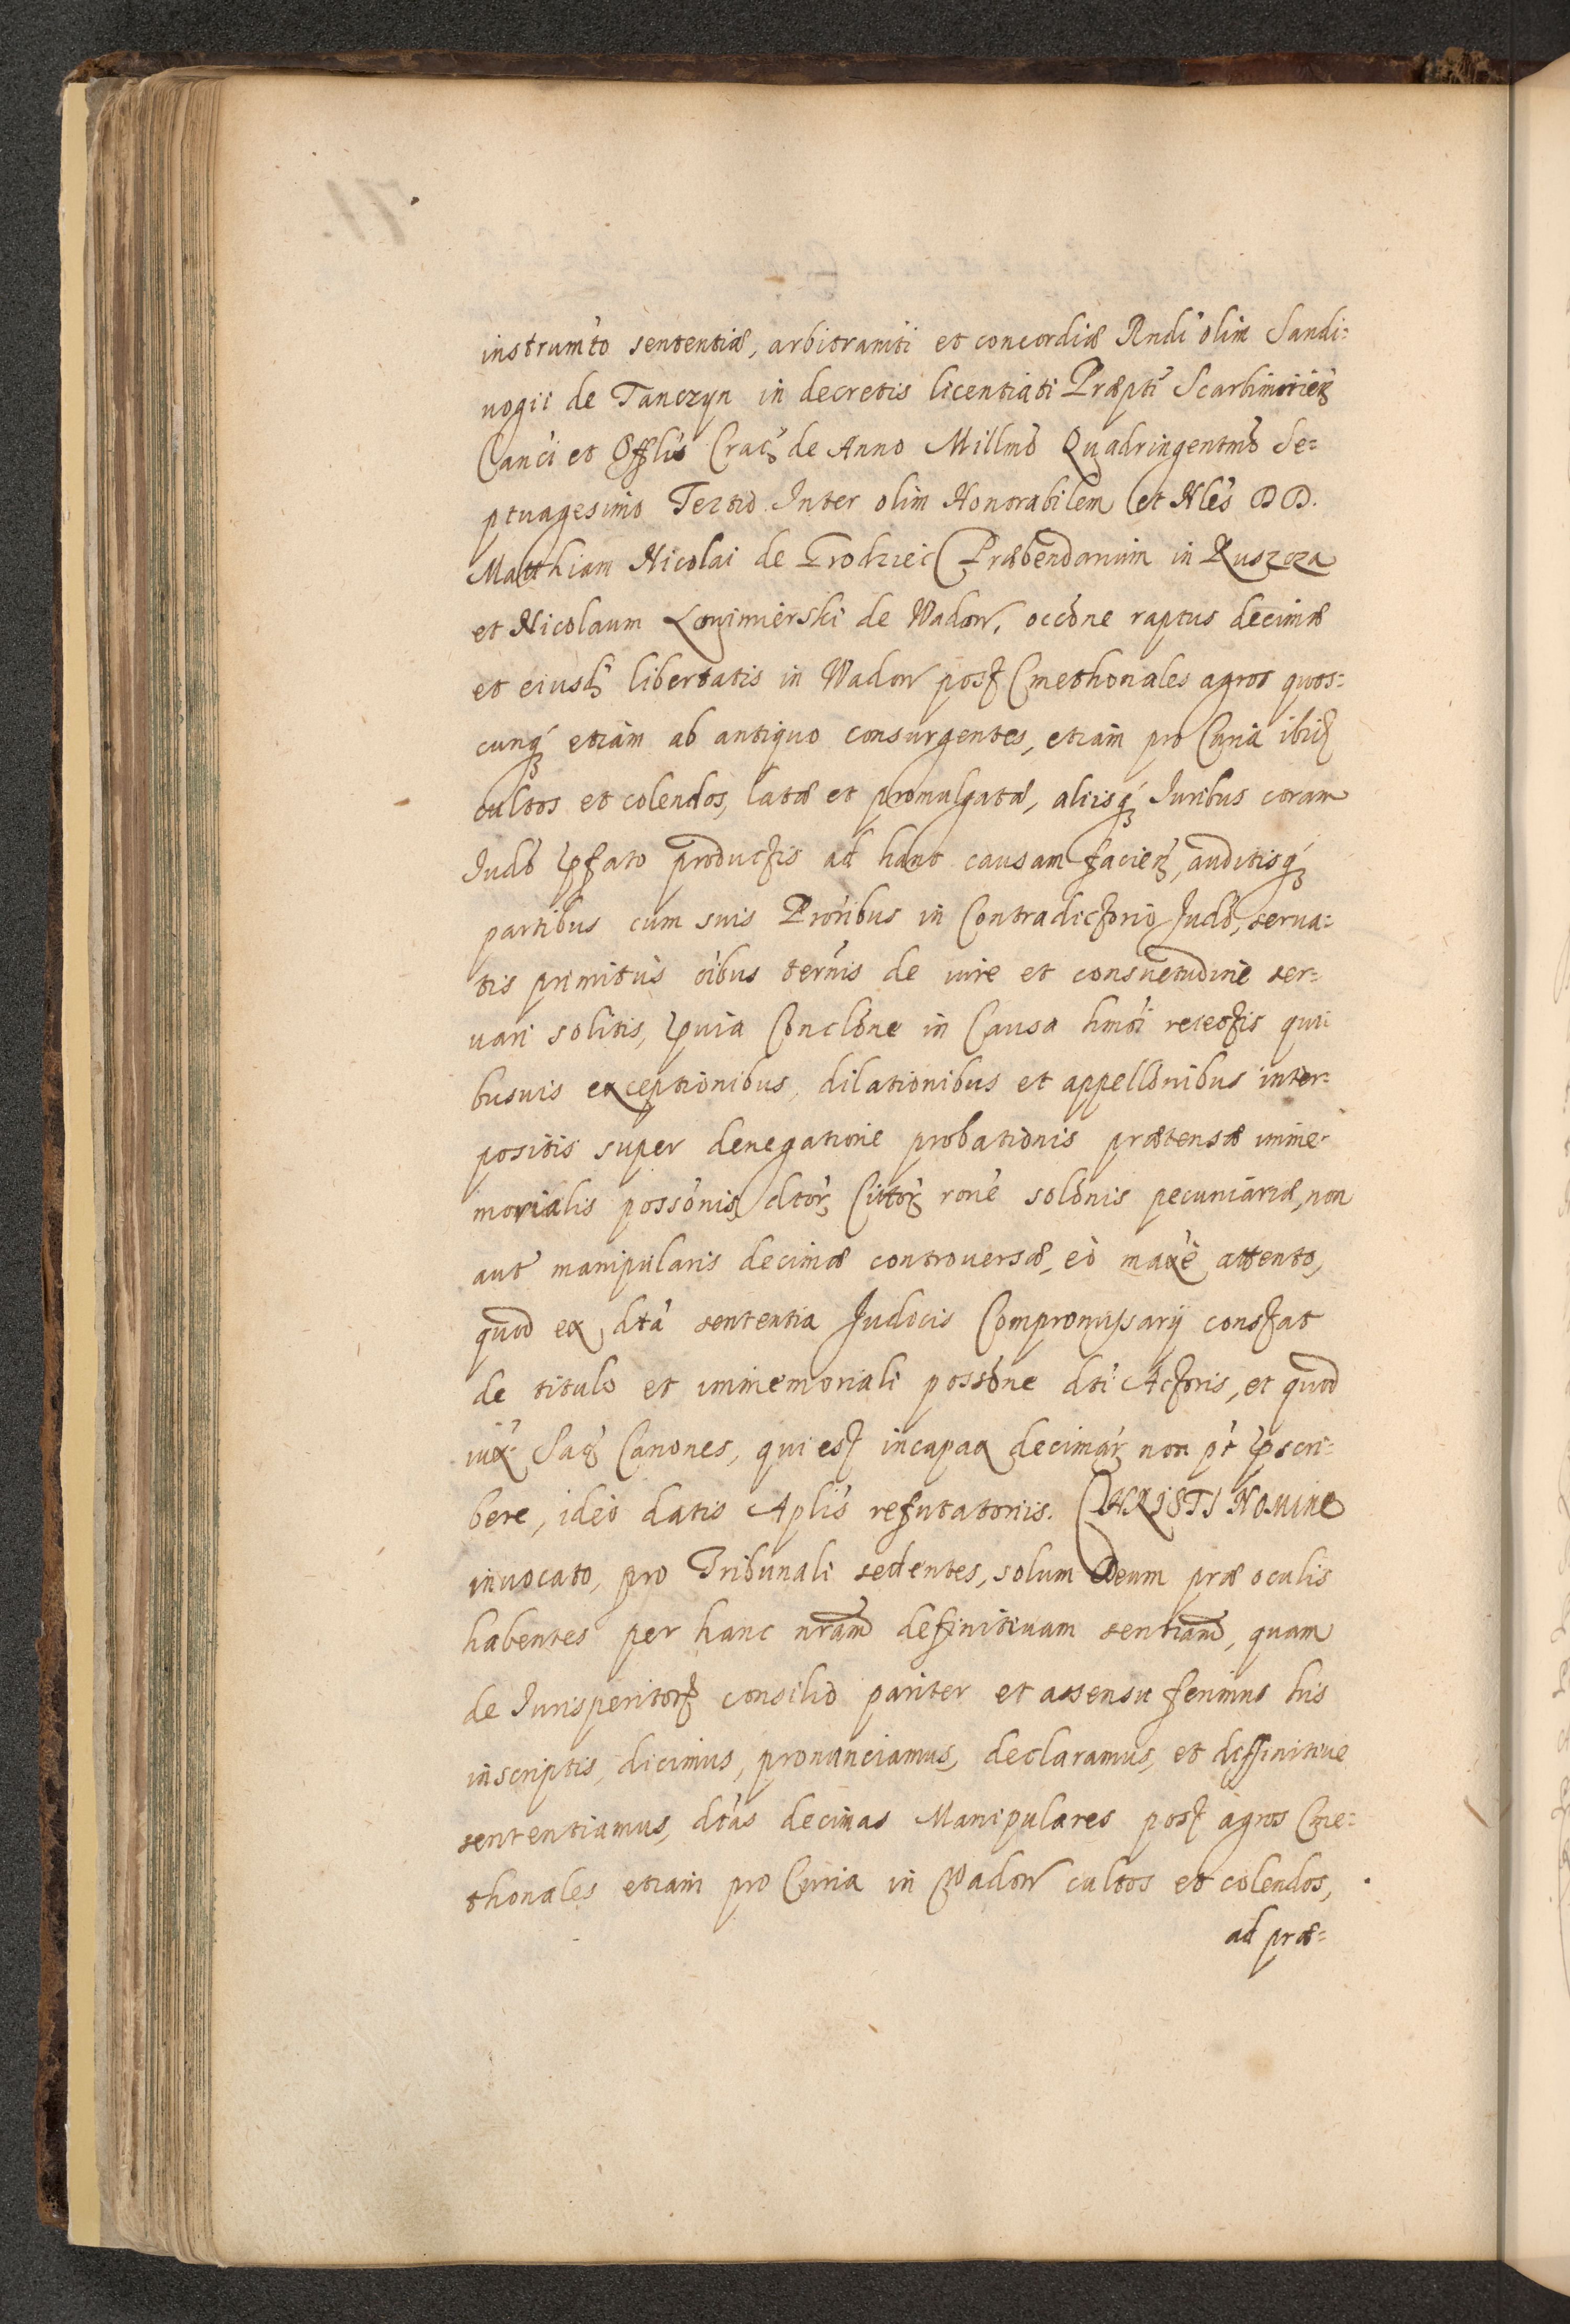 instrum̃to sententiæ, arbitram̃ti et concordiæ Rndi olim Sandi=
uogii de Tanczyn in decretis licentiati Præpti Scarbimirieñ
Canci et Offlis Crac de Anno Millmo Quadringentmo Se=
ptuagesimo Tertio Inter olim Honorabilem et Nles DD.
Matthiam Nicolai de Grodziec Præbendarium in Ruszcza
et Nicolaum Lowimierski de Wadow, occone raptus decimæ
et eiusd libertatis in Wadow post Cmethonales agros quos=
cunq etiam ab antiquo consurgentes, etiam pro Curia ibid
cultos et colendos, latæ et promulgatæ, aliisq Juribus coram
Judo pfato productis ad hanc causam facien, auditisq
partibus cum suis Proribus in Contradictorio Judo, serua=
tis primitus oibus termis de iure et consuetudine ser=
uari solitis, quia Conclone in Causa hmoi reiectis qui
busuis exceptionibus, dilationibus et appellonibus inter=
positis super denegatione probationis prætensæ imme=
morialis possonis dtor Cittor rone solonis pecuniariæ, non
aut manipularis decimæ controuersæ, eo maxe attento,
quod ex dta sententia Judicis Compromissarij constat
de titulo et immemoriali possone dti Actoris, et quod
iux Sac Canones, qui est incapax decimar non pt pscri=
bere, ideo datis Aplis refutatoriis. CHRISTI NOMINE
inuocato, pro Tribunali sedentes, solum Deum præ oculis
habentes per hanc nram definitiuam sentiam, quam
de Jurisperitor consilio pariter et assensu ferimus his
inscriptis, dicimus, pronunciamus, declaramus, et diffinitiue
sententiamus, dtas decimas Manipulares post agros Cme=
thonales etiam pro Curia in Wadow cultos et colendos,
ad præ=